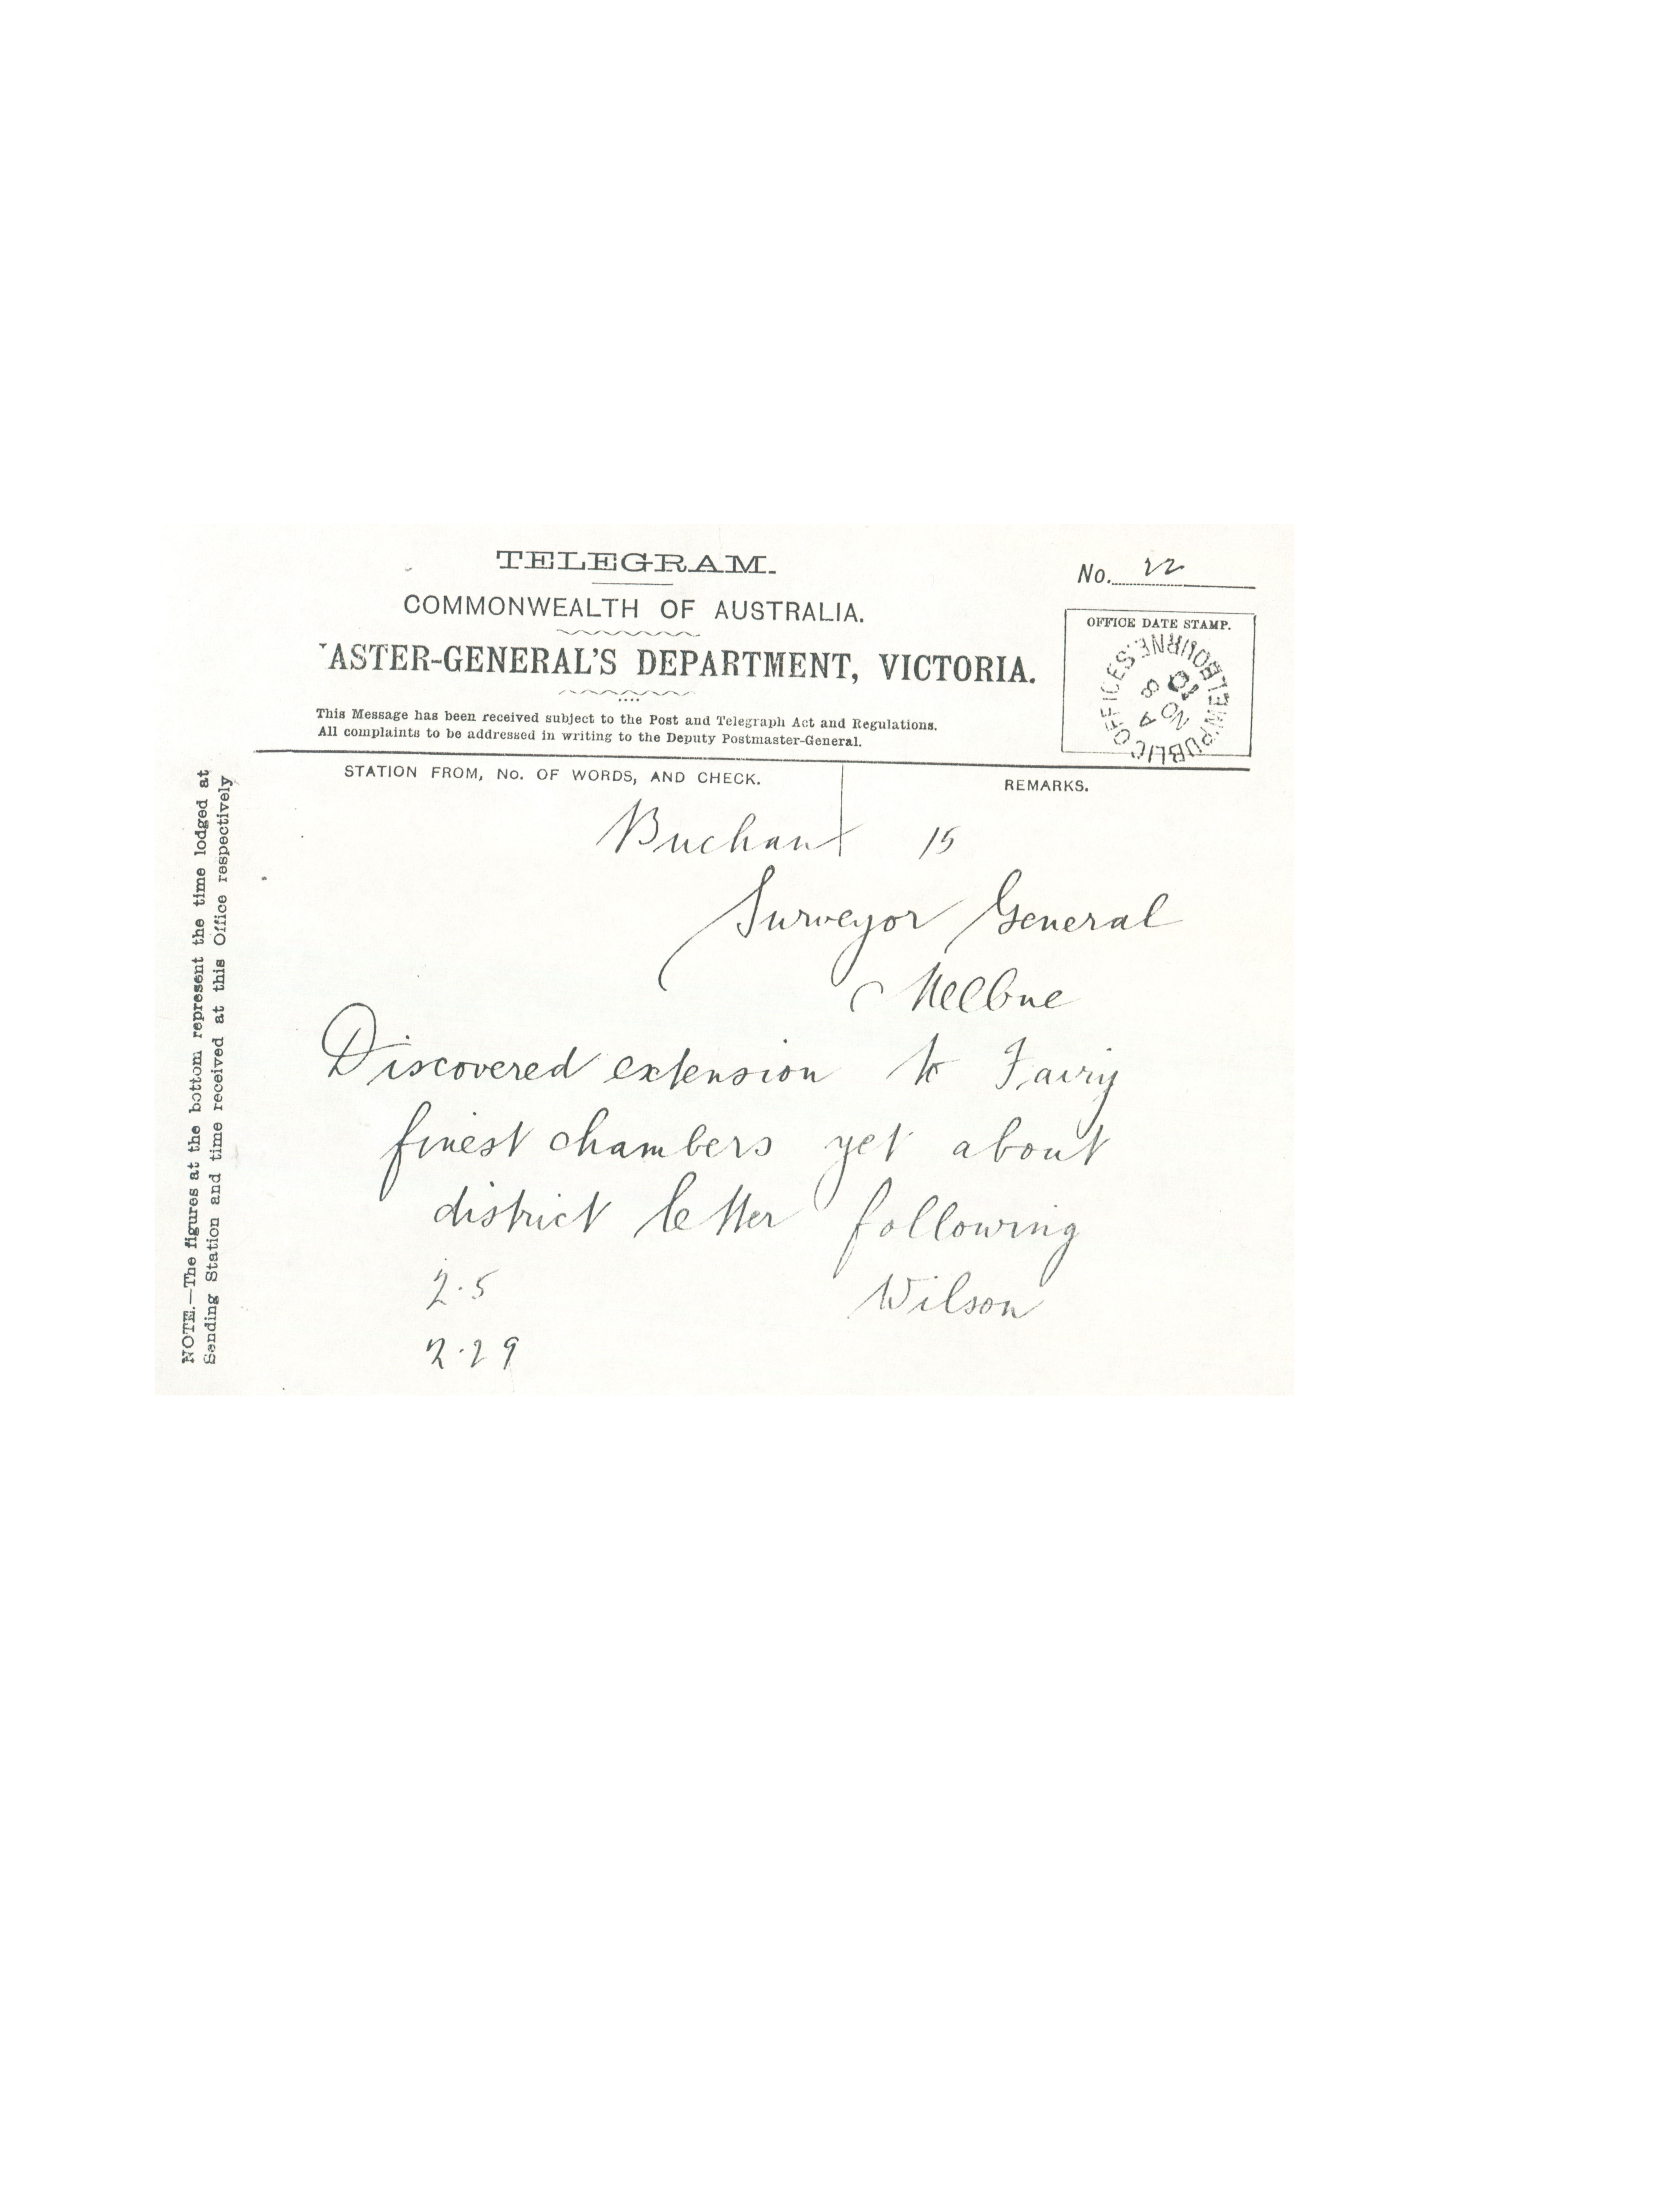 TELEGRAM.
No. 22
COMMONWEALTH OF AUSTRALIA.
ASTER-GENERAL'S DEPARTMENT, VICTORIA.
OFFICE DATE STAMP.
PUBLIC OFFICES. MELBOURNE
NO 4
8
This Message has been received subject to the Post and Telegraph Act and Regulations.
All complaints to be addressed in writing to the Deputy Postmaster-General.
STATION FROM, No. OF WORDS, AND CHECK.
REMARKS.
Buchan 15
Surveyor General
Melbne
Discovered extension to Fairy
finest chambers yet about
district letter following
2.5 Wilson
2.29
NOTE.—The figures at the bottom represent the time lodged at
Sending Station and time received at this Office respectively